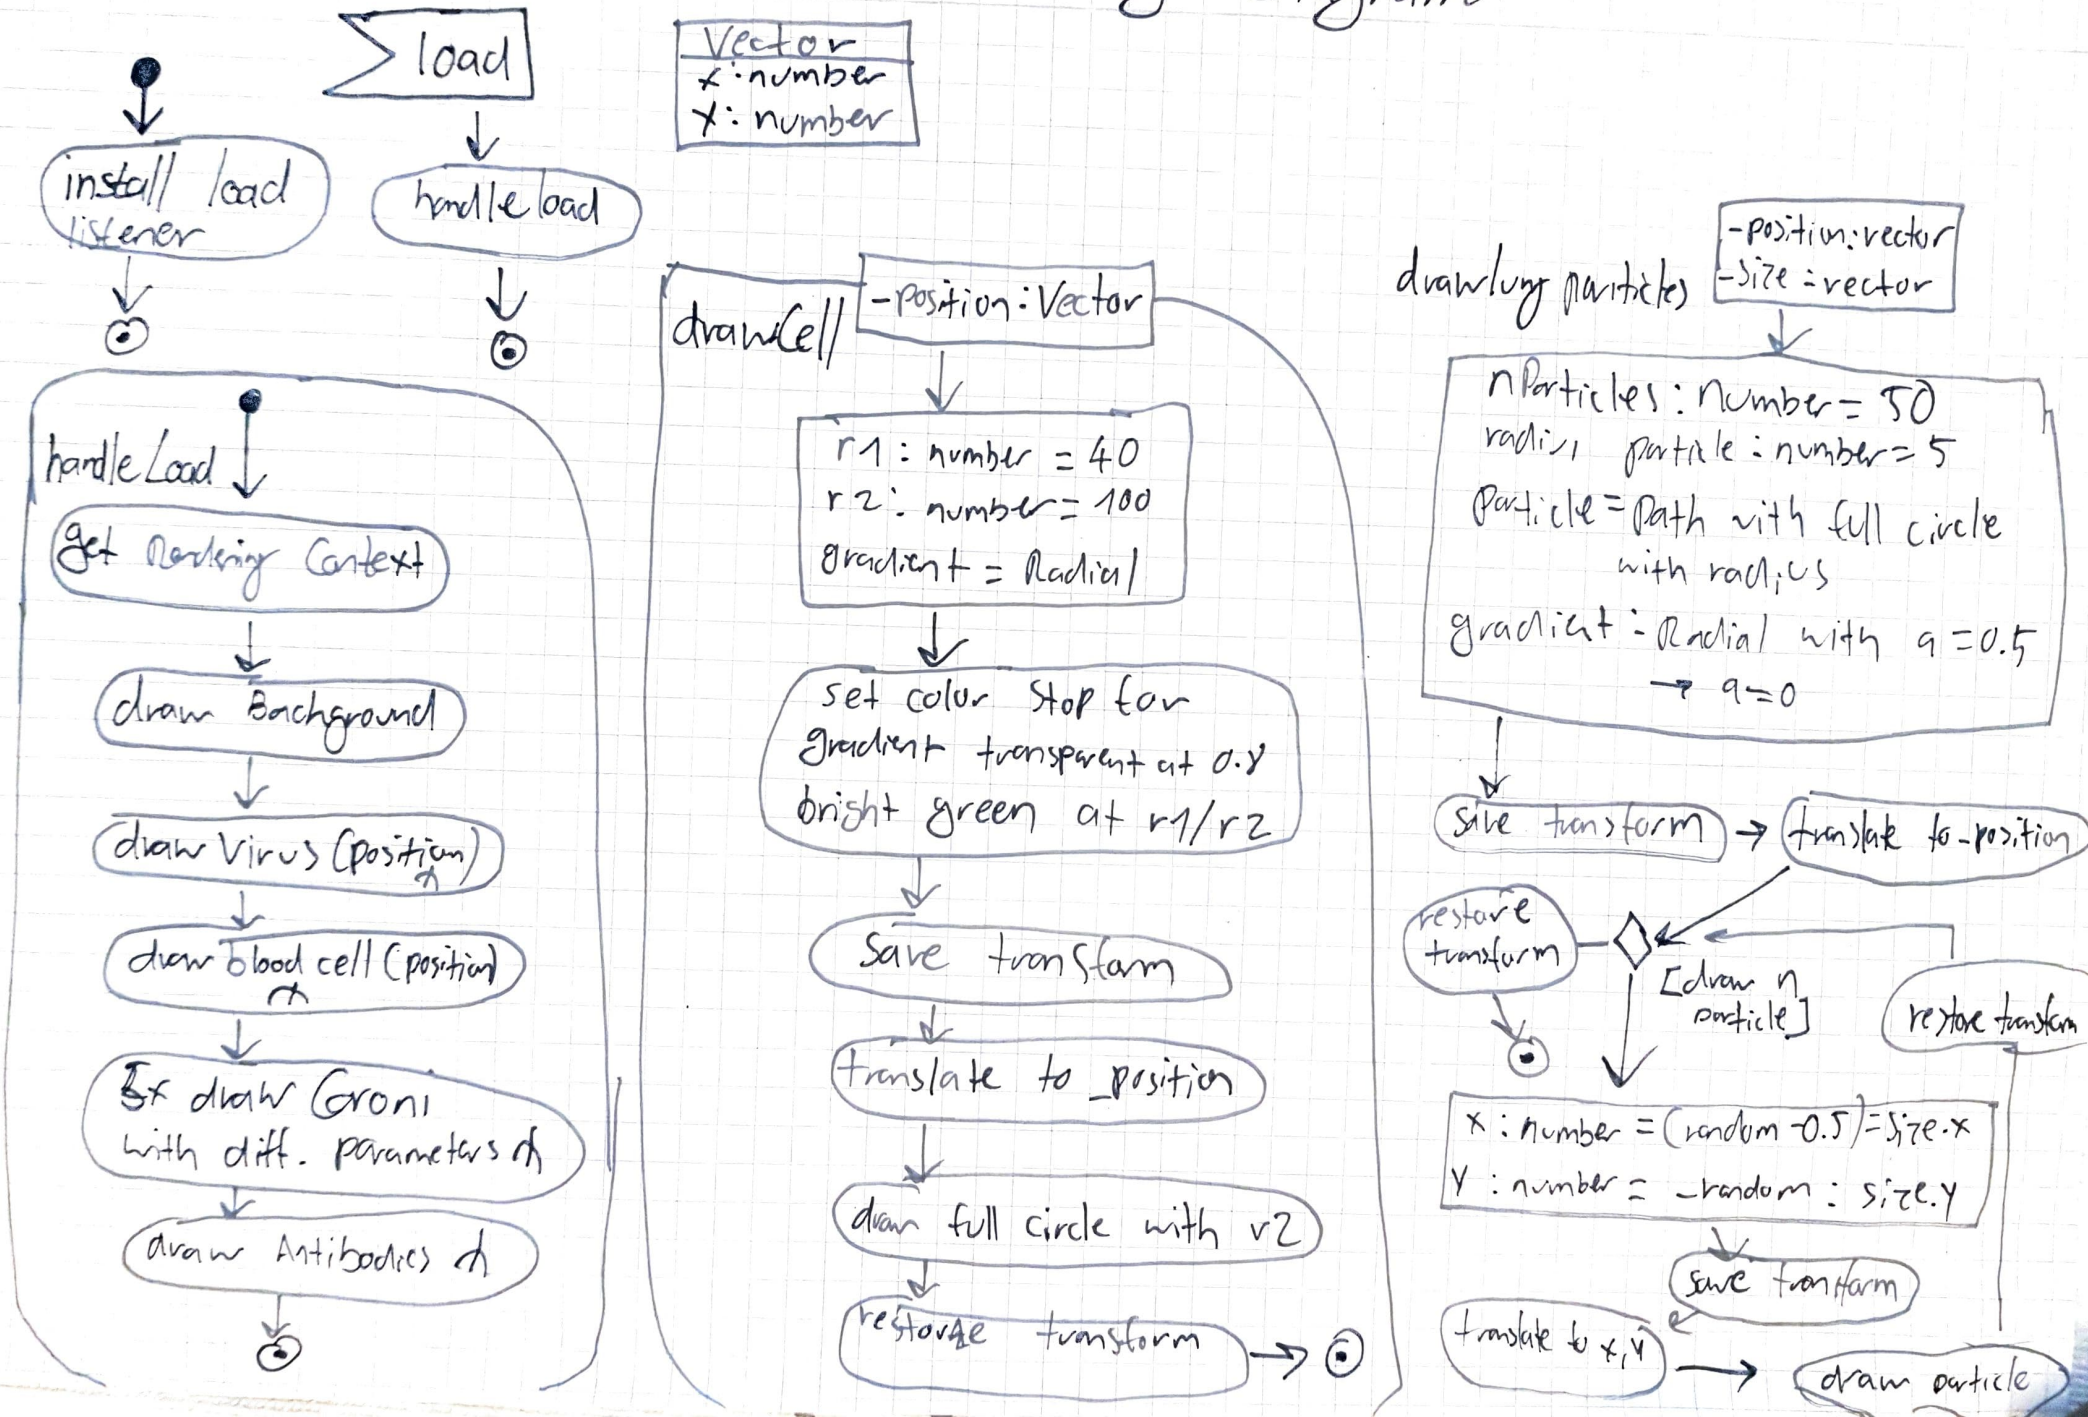 load
install load
listener
handleload
Vector
x:number
y: number
handleLoad
get Rendering Context
draw Background
draw Virus (position)
draw blood cell (position)
5x draw Coroni
with diff. parameters
draw Antibodies
drawCell
-position:Vector
r1: number = 40
r2: number = 100
gradient = Radial
set color stop for
gradient transparent at 0.8
bright green at r1/r2
save transform
translate to _position
draw full circle with r2
restore transform
draw lung particles
-position:vector
-size:vector
nParticles: number = 50
radius particle: number = 5
Particle = Path with full circle
with radius
gradient: Radial with a = 0.5
→ a=0
save transform
translate to _position
restore
transform
[draw n
particle]
restore transform
x: number = (random -0.5) = size.x
y: number = _random : size.y
save transform
translate to x,y
draw particle